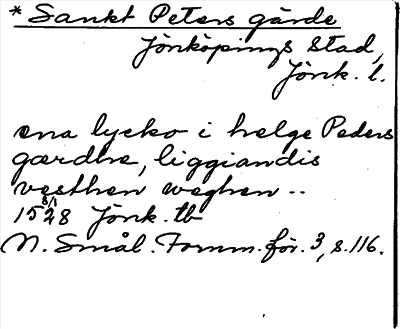 * Sankt Peters gärde
Jönköpings stad,
Jönk. l.
ena lycko i helge Peders
gærdhe, liggiandis
vesthen weghen --
8/1
1528 Jönk. tb
N. Smål. Fornm. för. 3, s. 116.